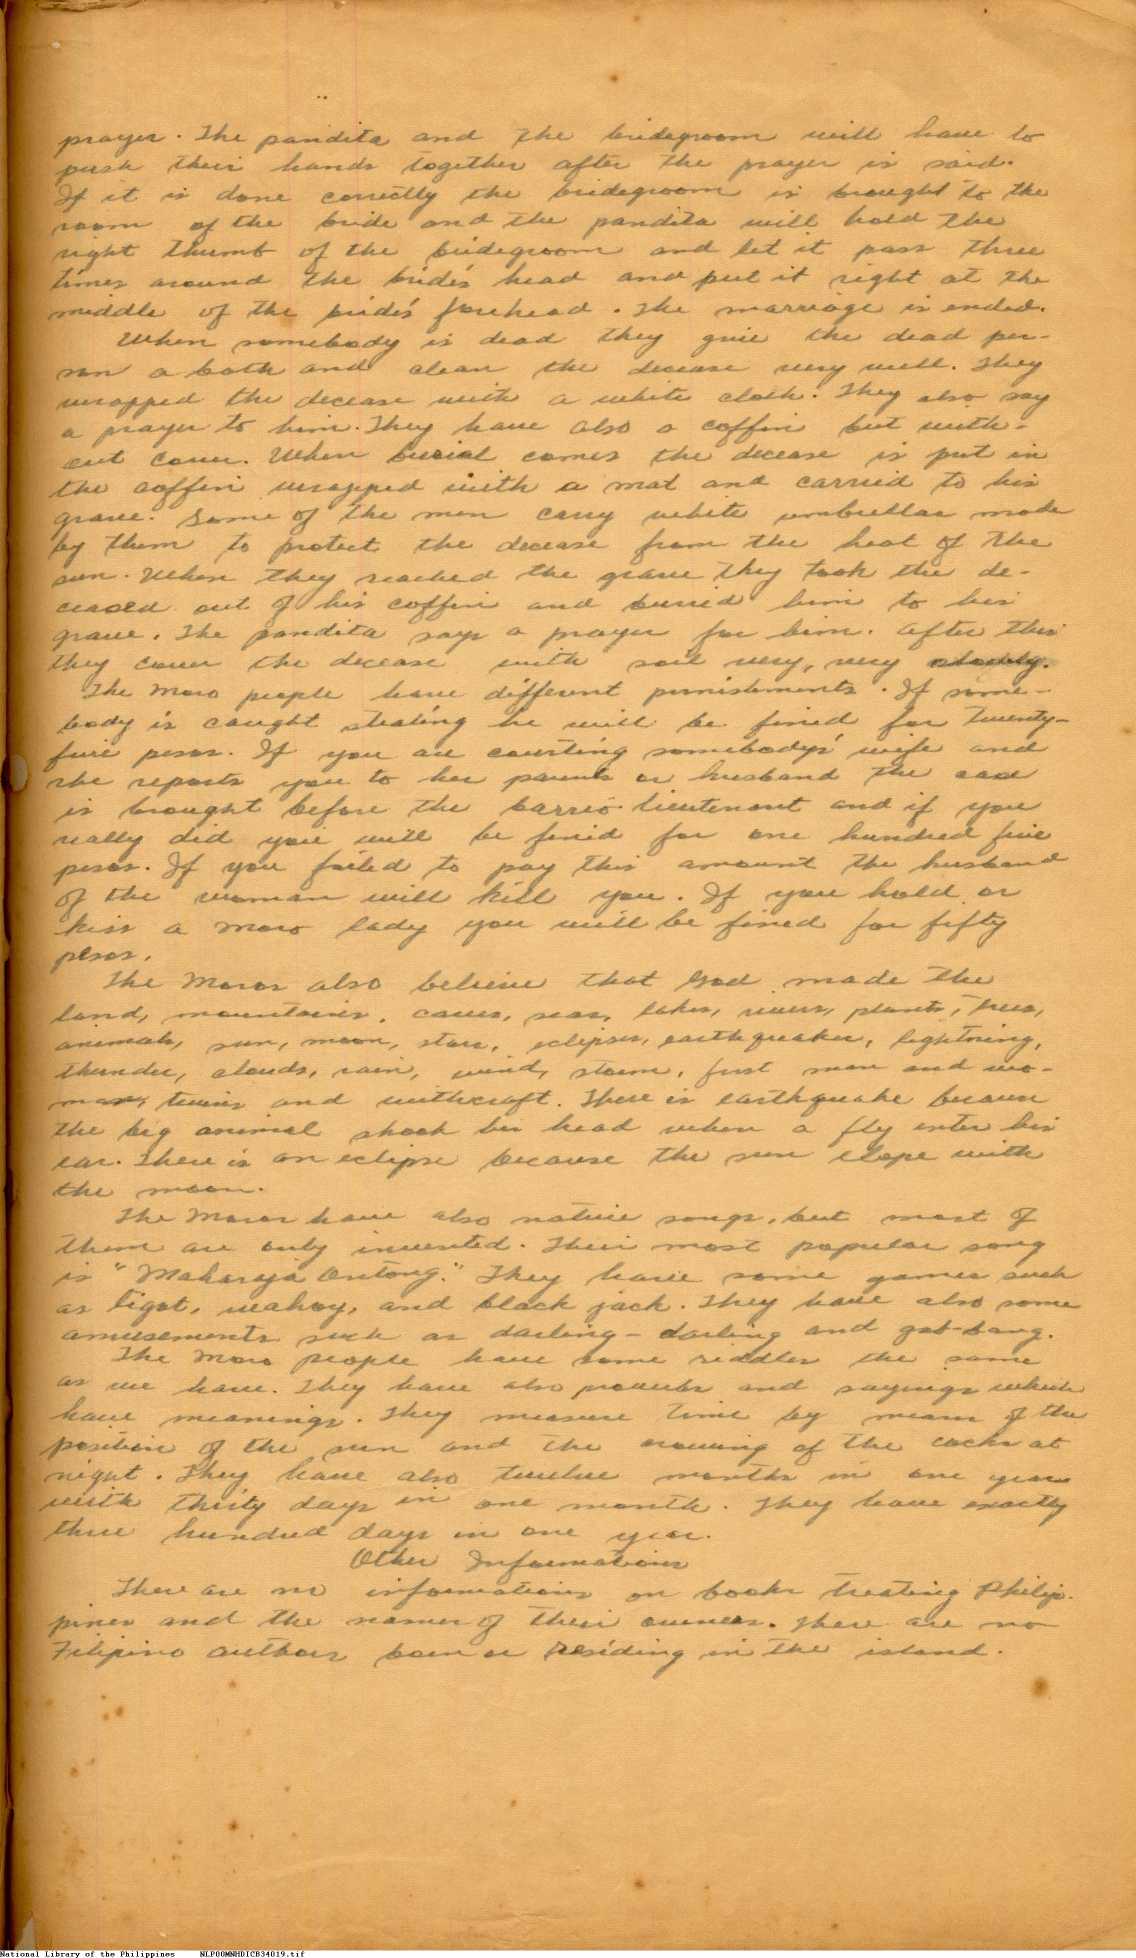 prayer. The pandita and the bridegroom will have to
push their hands together after the prayer is said.
If it is done correctly the bridegroom is brought to the
room of the bride and the pandita will hold the
right thumb of the bridegroom and let it pass three
times around the bride's head and put it right at the
middle of the bride's forehead. The marriage is ended.
When somebody is dead they give the dead per-
son a bath and clean the decease very well. They
wrapped the decease with a white cloth. They also say
a prayer to him. They have also a coffin but with-
out cover. When burial comes the decease is put in
the coffin wrapped with a mat and carried to his
grave. Some of the men carry white umbrellas made
by them to protect the decease from the heat of the
sun. When they reached the grave they took the de-
ceased out of his coffin and buried him to his
grave. The pandita says a prayer for him. After this
they cover the decease with soil very, very slowly.
The Moro people have different punishments. If some-
body is caught stealing he will be fined for twenty-
five pesos. If you are courting somebody's wife and
she reports you to her parents or husband the case
is brought before the barrio lieutenant and if you
really did you will be fined for one hundred five
pesos. If you failed to pay this amount the husband
of the woman will kill you. If you hold or
kiss a Moro lady you will be fined for fifty
pesos.
The Moros also believe that God made the
land, mountains, caves, seas, lakes, rivers, plants, trees,
animals, sun, moon, stars, eclipses, earthquakes, lightning,
thunder, clouds, rain, wind, storm, first man and wo-
man, twins and withcraft. There is earthquake because
the big animal shook her head when a fly enter his
ear. There is an eclipse because the sun elope with
the moon.
The Moros have also native songs, but most of
them are only invented. Their most popular song
is "Maharaja Ontong." They have some games such
as ligot, and black jack. They have also some
amusements such as darling-darling and gab-bang.
The Moro people have some riddles the same
as we have. They have also proverbs and sayings which
have meanings. They measure time by means of the
position of the sun and the crowing of the cocks at
night. They have also twelve months in one year
with thirty days in one month. They have exactly
three hundred days in one year.
Other Informations
There are no informations on books treating Philip-
pines and the names of their owners. There are no
Filipino authors born or residing in the island.
National Library of the Philippines NLP00MNHDICB34019.tif